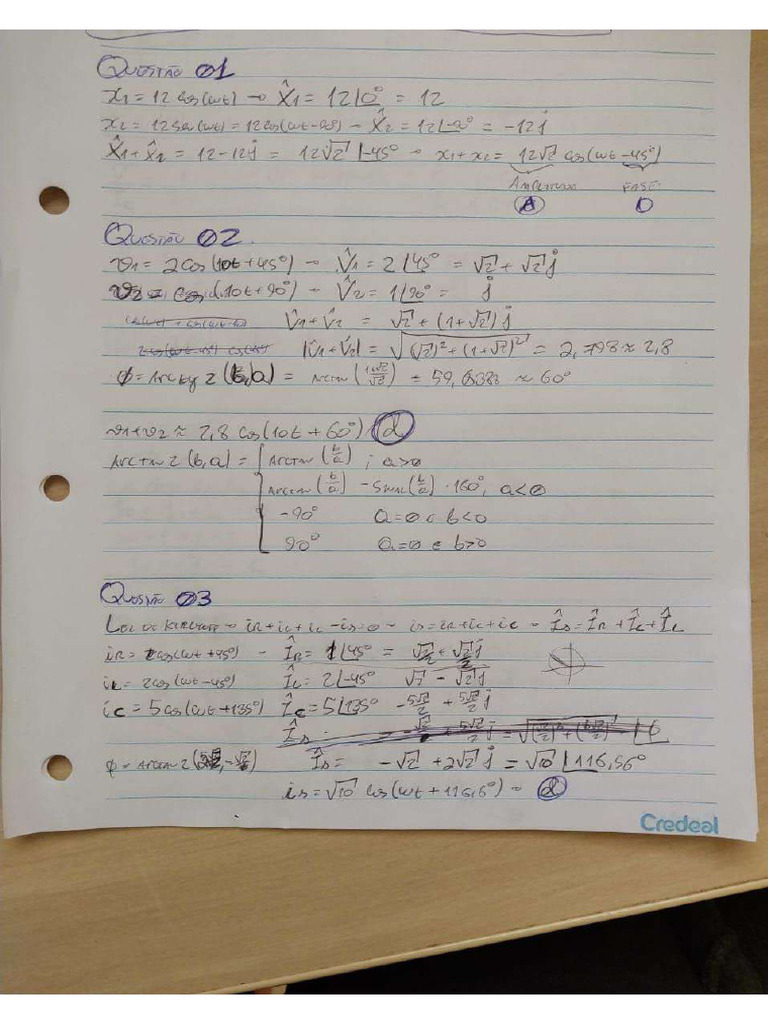 Questão 01
x1 = 12 cos(ωt) → X̂1 = 12∠0° = 12
x2 = 12sen(ωt) = 12cos(ωt-90°) → X̂2 = 12∠-90° = -12j
X̂1 + X̂2 = 12-12j = 12√2 ∠-45° → x1+x2 = 12√2 cos(ωt-45°)
Amplitude Fase:
A D
Questão 02.
v1 = 2cos(10t+45°) → V̂1 = 2∠45° = √2 + √2j
v2 = cos(10t+90°) → V̂2 = 1∠90° = j
V̂1+V̂2 = √2 + (1+√2)j
|V̂1+V̂2| = √((√2)²+(1+√2)²) = 2,798 ≈ 2,8
φ = Arctg2(b,a) = Arctan((1+√2)/√2) = 59,6388 ≈ 60°
v1+v2 ≈ 2,8 cos(10t+60°) d
Arctan2(b,a) = { Arctan(b/a) ; a>0
Arctan(b/a) - Sinal(b/a)·180°, a<0
-90° a=0 e b<0
90° a=0 e b>0
Questão 03
Lei de Kirchhoff → iR+iL+iC-iS=0 → iS=iR+iL+iC → ÎS = ÎR+ÎC+ÎL
iR = cos(ωt+45°) → ÎR = 1∠45° = √2/2 + √2/2j
iL = 2cos(ωt-45°) ÎL = 2∠-45° √2 - √2j
iC = 5cos(ωt+135°) ÎC = 5∠135° -5√2/2 + 5√2/2j
φ = Arctan2( ÎS = -√2 + 2√2j = √10 ∠116,56°
iS = √10 cos(ωt+116,6°) → d
Credeal